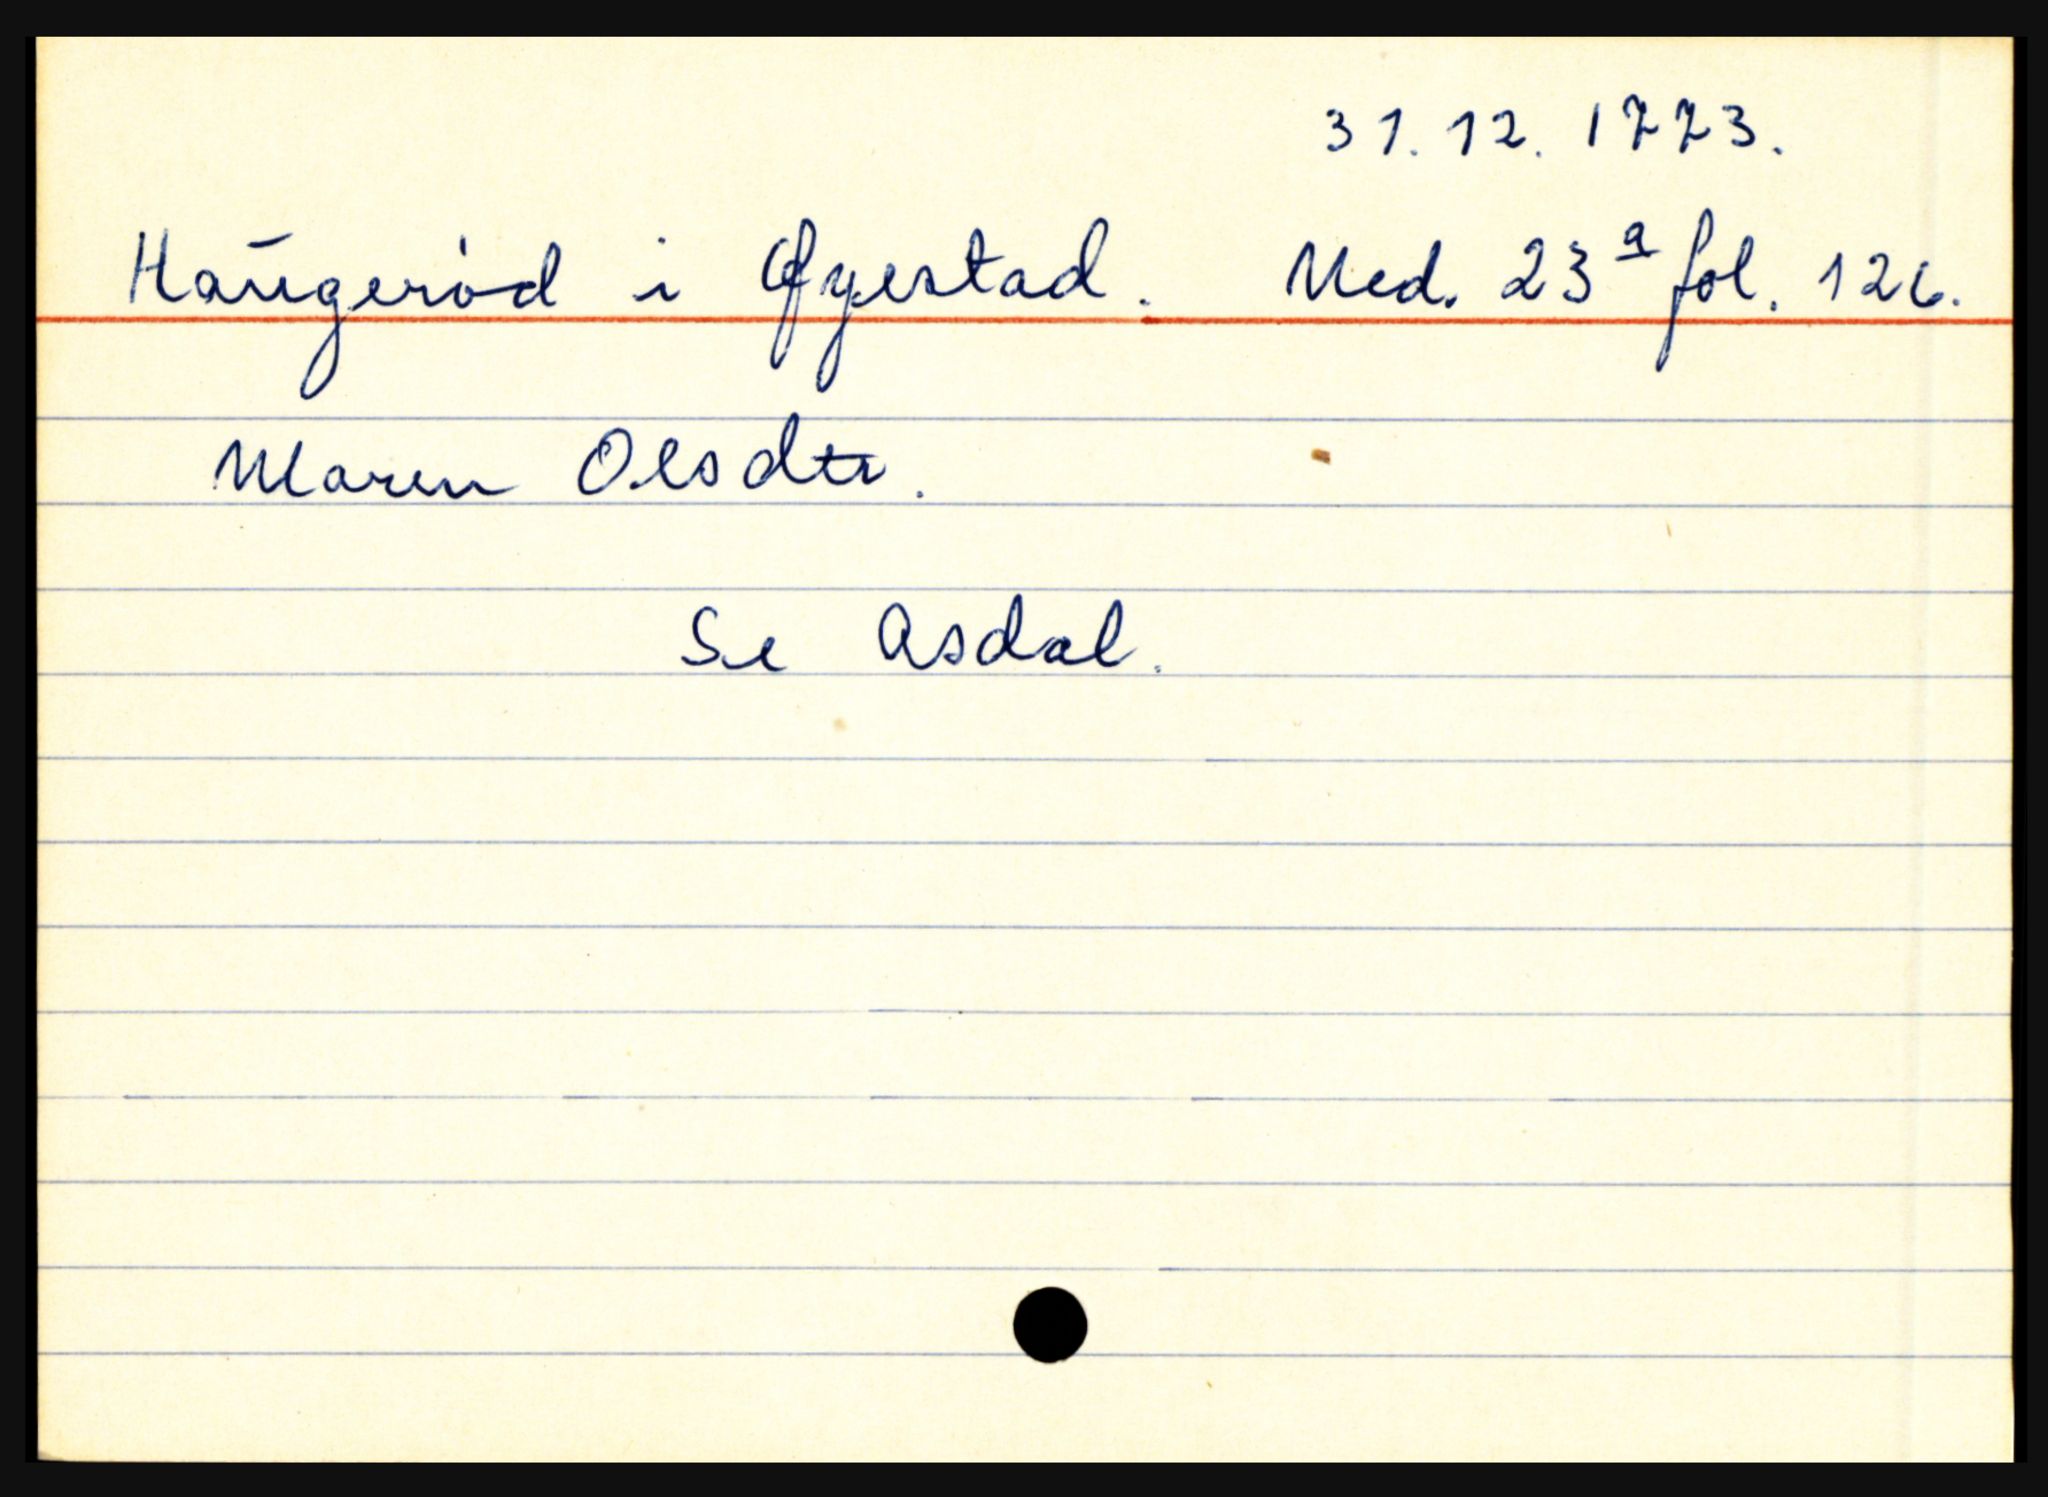 31. 12. 1773.
Haugeröd i Øyestad. Ned. 23a fol. 126.
Maren Olsdtr.
Se Asdal.